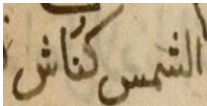 الشمس كنّاش